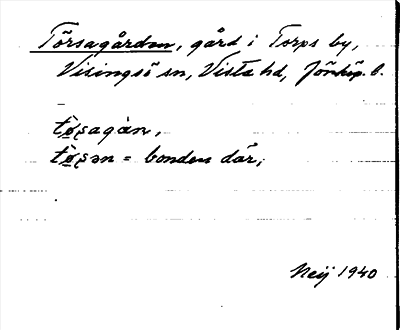 Törsagården, gård i Torps by,
Visingsö sn, Vista hd, Jönköp. l.
tø̀ʂagàn,
tø̀ʂən = bonden där;
Neij 1940